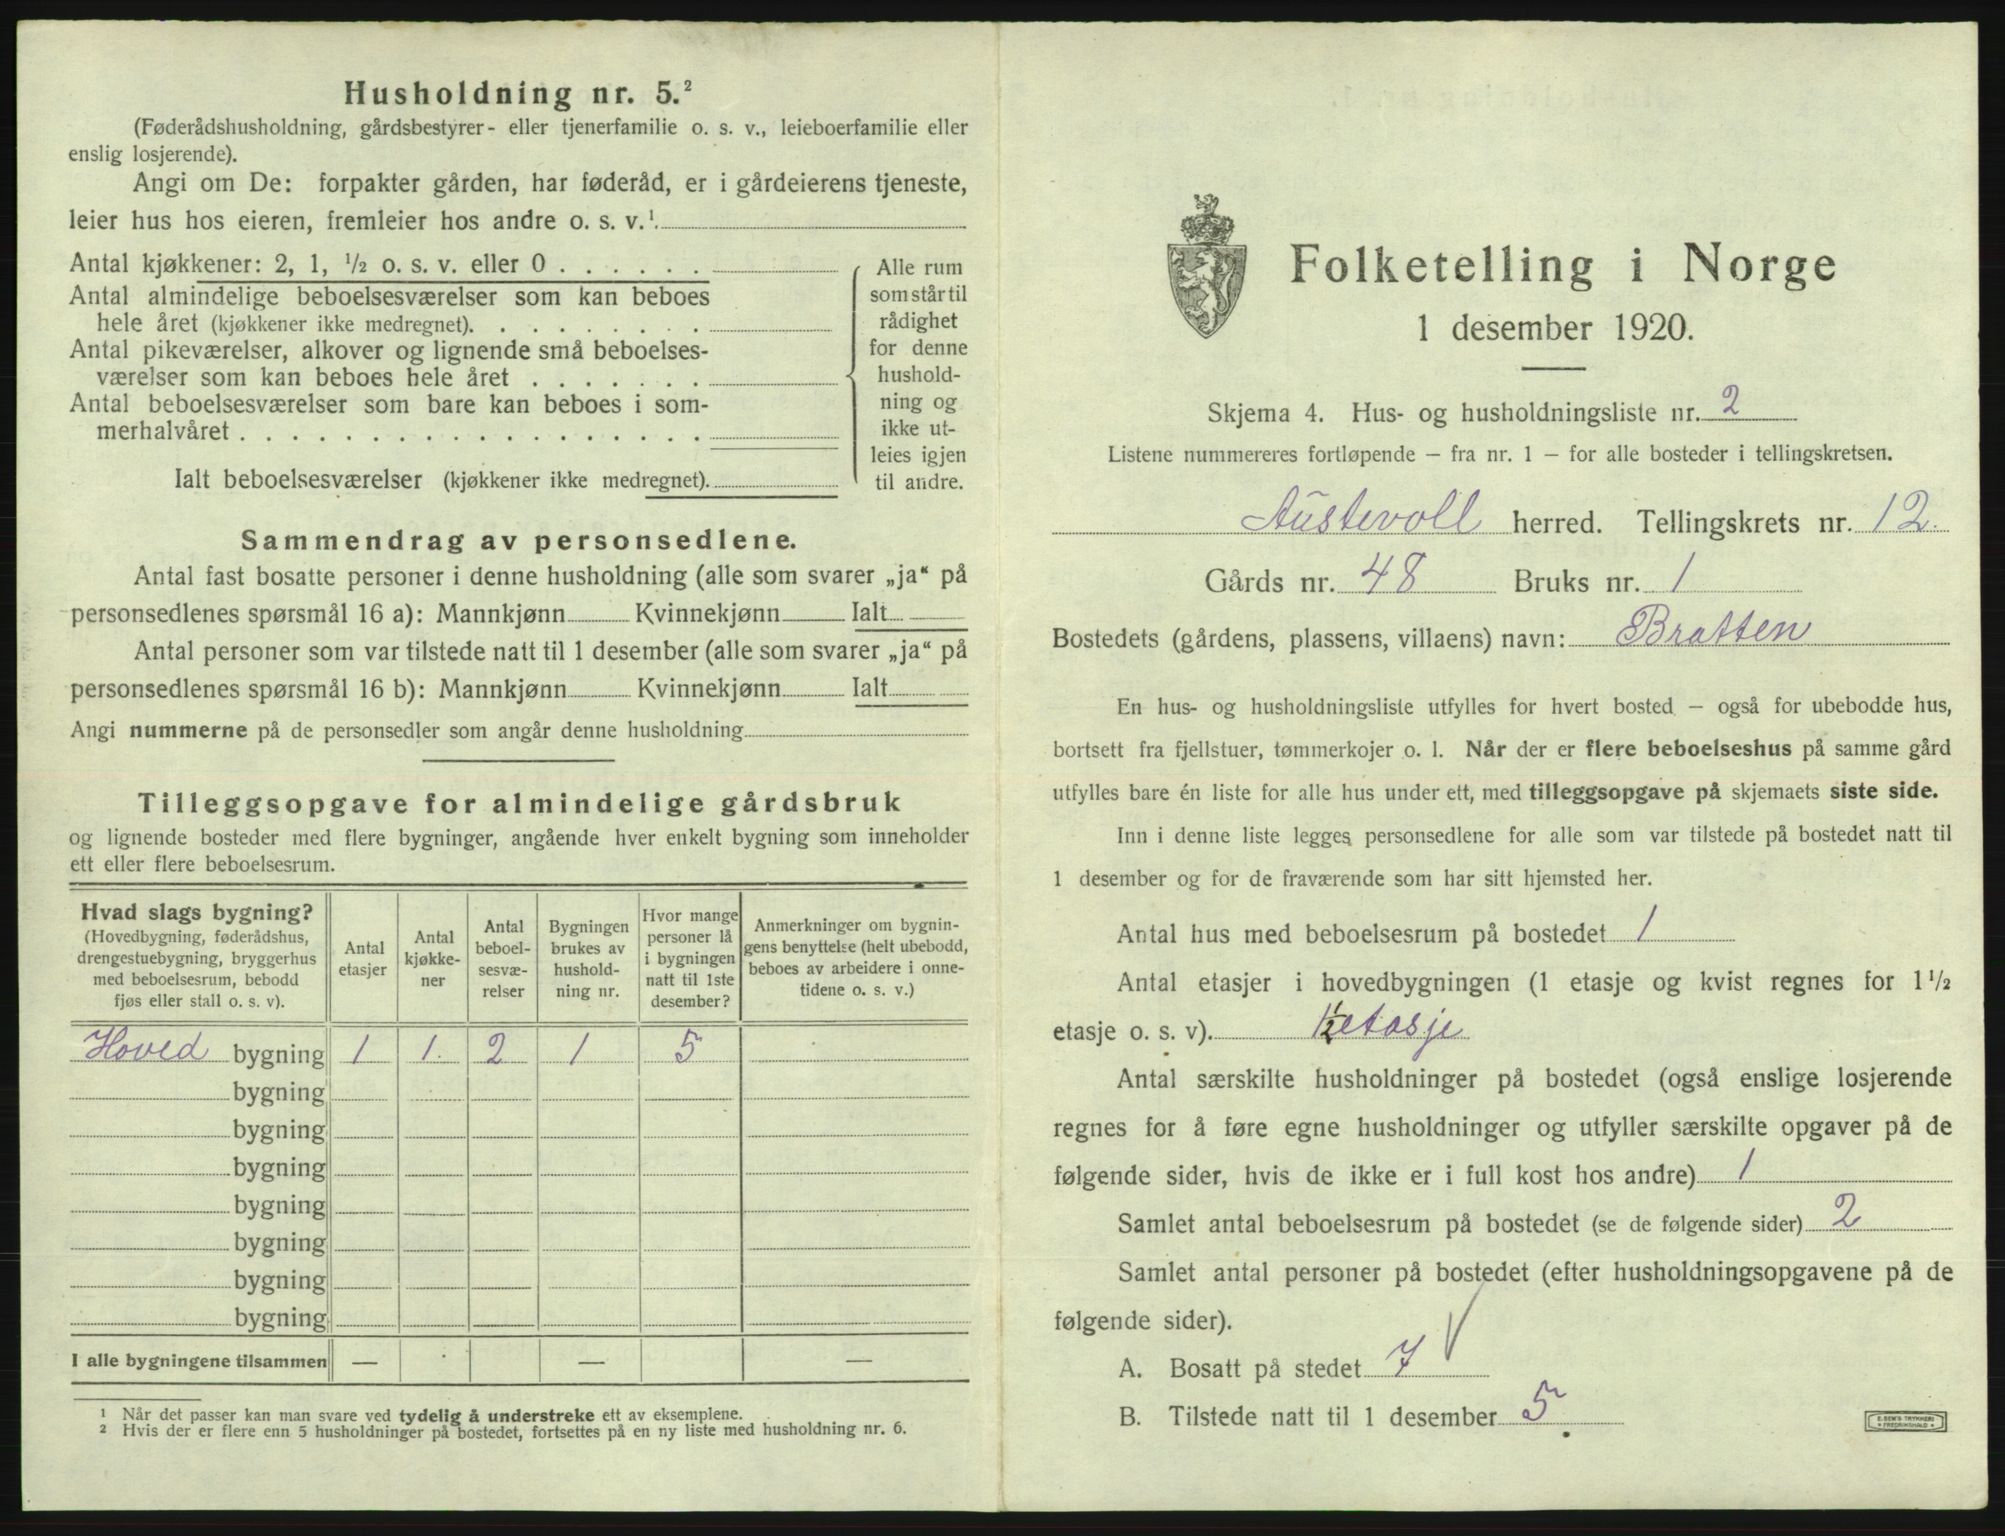 Husholdning nr. 5.²
(Føderådshusholdning, gårdsbestyrer- eller tjenerfamilie o. s. v., leieboerfamilie eller
enslig losjerende).
Angi om De: forpakter gården, har føderåd, er i gårdeierens tjeneste,
leier hus hos eieren, fremleier hos andre o. s. v.¹
Antal kjøkkener: 2, 1, ½ o. s. v. eller 0 . . . . . .
Antal almindelige beboelsesværelser som kan beboes
hele året (kjøkkener ikke medregnet). . . . . . . . .
Antal pikeværelser, alkover og lignende små beboelses-
værelser som kan beboes hele året . . . . . . .
Antal beboelsesværelser som bare kan beboes i som-
merhalvåret . . . . . . . . . . . . . . . . . .
Ialt beboelsesværelser (kjøkkener ikke medregnet).
Alle rum
som står til
rådighet
for denne
hushold-
ning og
ikke ut-
leies igjen
til andre.
Sammendrag av personsedlene.
Antal fast bosatte personer i denne husholdning (alle som svarer „ja“ på
personsedlenes spørsmål 16 a): Mannkjønn Kvinnekjønn Ialt
Antal personer som var tilstede natt til 1 desember (alle som svarer „ja“ på
personsedlenes spørsmål 16 b): Mannkjønn Kvinnekjønn Ialt
Angi nummerne på de personsedler som angår denne husholdning
Tilleggsopgave for almindelige gårdsbruk
og lignende bosteder med flere bygninger, angående hver enkelt bygning som inneholder
ett eller flere beboelsesrum.
Hvad slags bygning?
(Hovedbygning, føderådshus,
drengestuebygning, bryggerhus
med beboelsesrum, bebodd
fjøs eller stall o. s. v).
Antal
etasjer
Antal
kjøkke-
ner
Antal
beboel-
sesvæ-
relser
Bygningen
brukes av
hushold-
ning nr.
Hvor mange
personer lå
i bygningen
natt til 1ste
desember?
Anmerkninger om bygnin-
gens benyttelse (helt ubebodd,
beboes av arbeidere i onne-
tidene o. s. v.)
Hoved bygning 1 1. 2 1 5
bygning
bygning
bygning
bygning
bygning
bygning
bygning
I alle bygningene tilsammen — — —
¹ Når det passer kan man svare ved tydelig å understreke ett av eksemplene.
² Hvis der er flere enn 5 husholdninger på bostedet, fortsettes på en ny liste med husholdning nr. 6.
Folketelling i Norge
1 desember 1920.
Skjema 4. Hus- og husholdningsliste nr. 2
Listene nummereres fortløpende – fra nr. 1 – for alle bosteder i tellingskretsen.
Austevoll herred. Tellingskrets nr. 12.
Gårds nr. 48 Bruks nr. 1
Bostedets (gårdens, plassens, villaens) navn: Bratten
En hus- og husholdningsliste utfylles for hvert bosted – også for ubebodde hus,
bortsett fra fjellstuer, tømmerkojer o. l. Når der er flere beboelseshus på samme gård
utfylles bare én liste for alle hus under ett, med tilleggsopgave på skjemaets siste side.
Inn i denne liste legges personsedlene for alle som var tilstede på bostedet natt til
1 desember og for de fraværende som har sitt hjemsted her.
Antal hus med beboelsesrum på bostedet 1
Antal etasjer i hovedbygningen (1 etasje og kvist regnes for 1½
etasje o. s. v). 1½ etasje
Antal særskilte husholdninger på bostedet (også enslige losjerende
regnes for å føre egne husholdninger og utfyller særskilte opgaver på de
følgende sider, hvis de ikke er i full kost hos andre) 1
Samlet antal beboelsesrum på bostedet (se de følgende sider) 2
Samlet antal personer på bostedet (efter husholdningsopgavene på de
følgende sider).
A. Bosatt på stedet 7
B. Tilstede natt til 1 desember 5
E. SEM'S TRYKKERI
FREDRIKSHALD